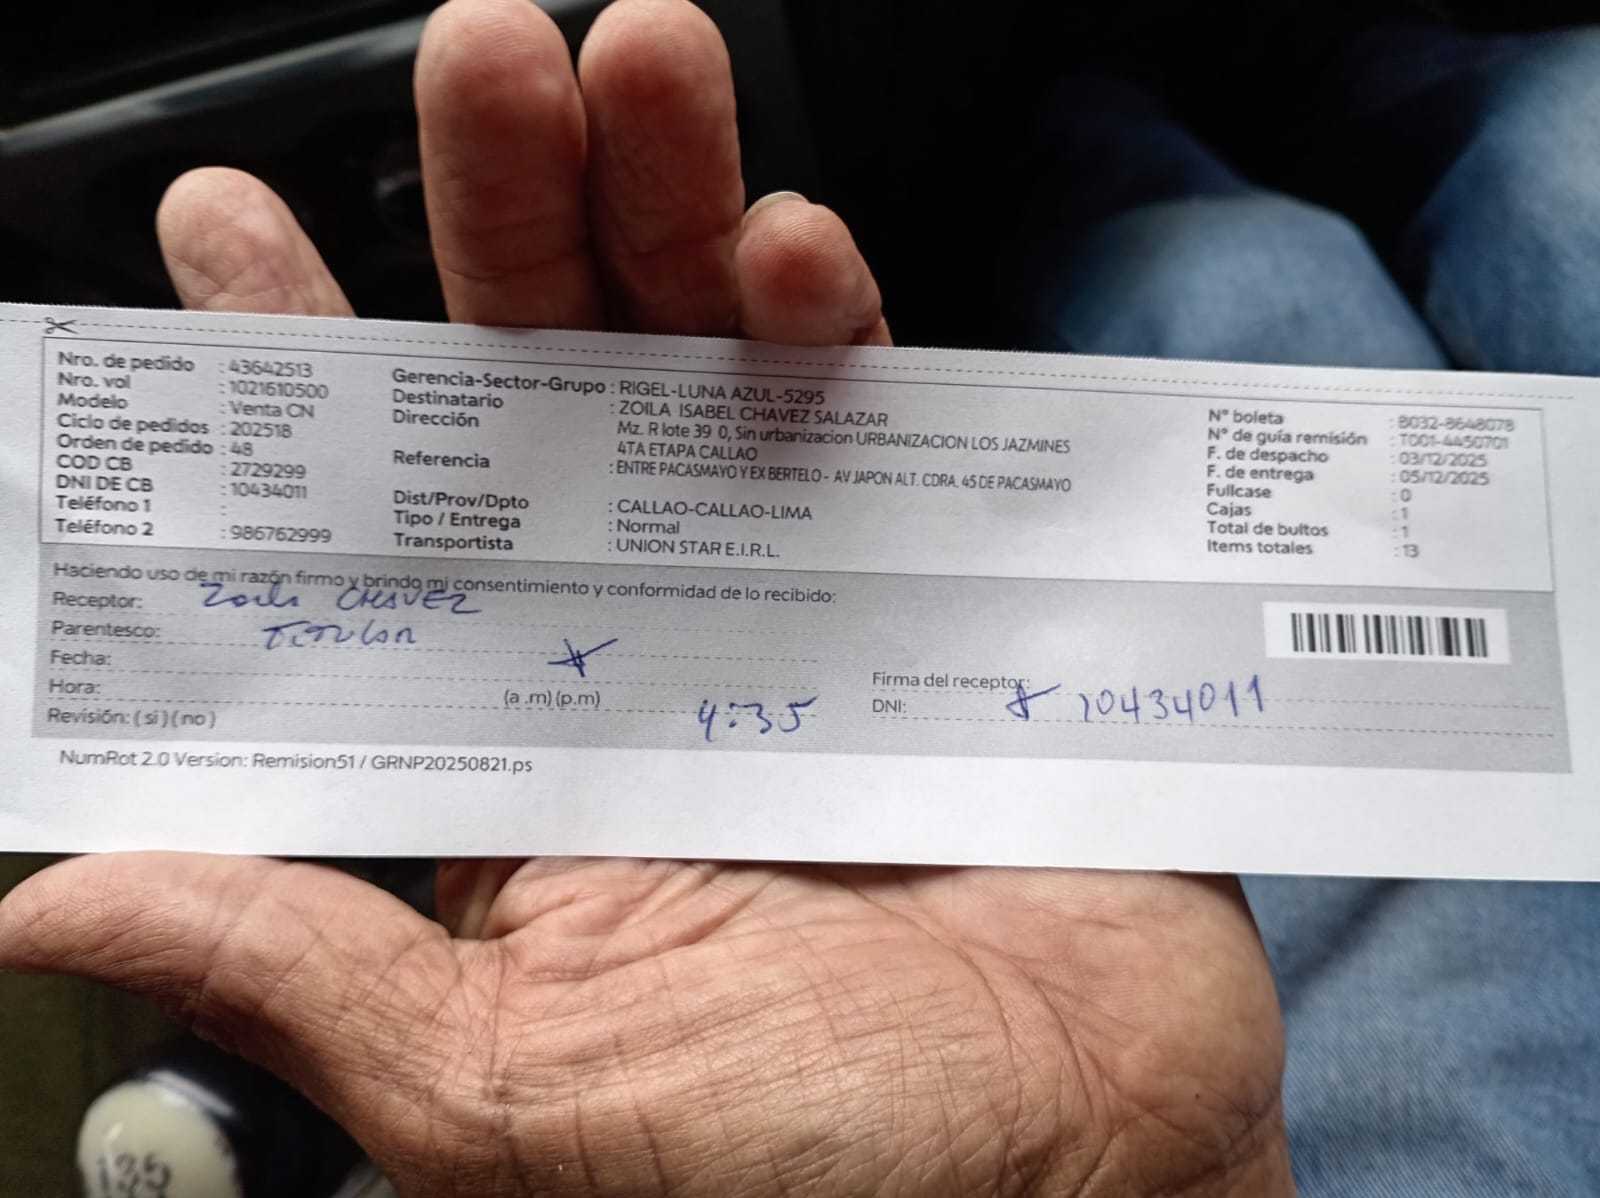 Nro. de pedido : 43642513
Nro. vol : 1021610500
Modelo : Venta CN
Ciclo de pedidos : 202518
Orden de pedido : 48
COD CB : 2729299
DNI DE CB : 10434011
Teléfono 1 :
Teléfono 2 : 986762999
Gerencia-Sector-Grupo : RIGEL-LUNA AZUL-5295
Destinatario : ZOILA ISABEL CHAVEZ SALAZAR
Dirección Mz. R lote 39 0, Sin urbanizacion URBANIZACION LOS JAZMINES
4TA ETAPA CALLAO
Referencia : ENTRE PACASMAYO Y EX BERTELO - AV JAPON ALT. CDRA. 45 DE PACASMAYO
Dist/Prov/Dpto : CALLAO-CALLAO-LIMA
Tipo / Entrega : Normal
Transportista : UNION STAR E.I.R.L.
N° boleta : B032-8648078
N° de guía remisión : T001-4450701
F. de despacho : 03/12/2025
F. de entrega : 05/12/2025
Fullcase : 0
Cajas : 1
Total de bultos : 1
Items totales : 13
Haciendo uso de mi razón firmo y brindo mi consentimiento y conformidad de lo recibido:
Receptor: Zoila CHAVEZ
Parentesco: Titular
Fecha:
Hora: (a .m) (p.m) 4:35
Revisión: ( si ) ( no )
Firma del receptor:
DNI: 10434011
NumRot 2.0 Version: Remision51 / GRNP20250821.ps
135